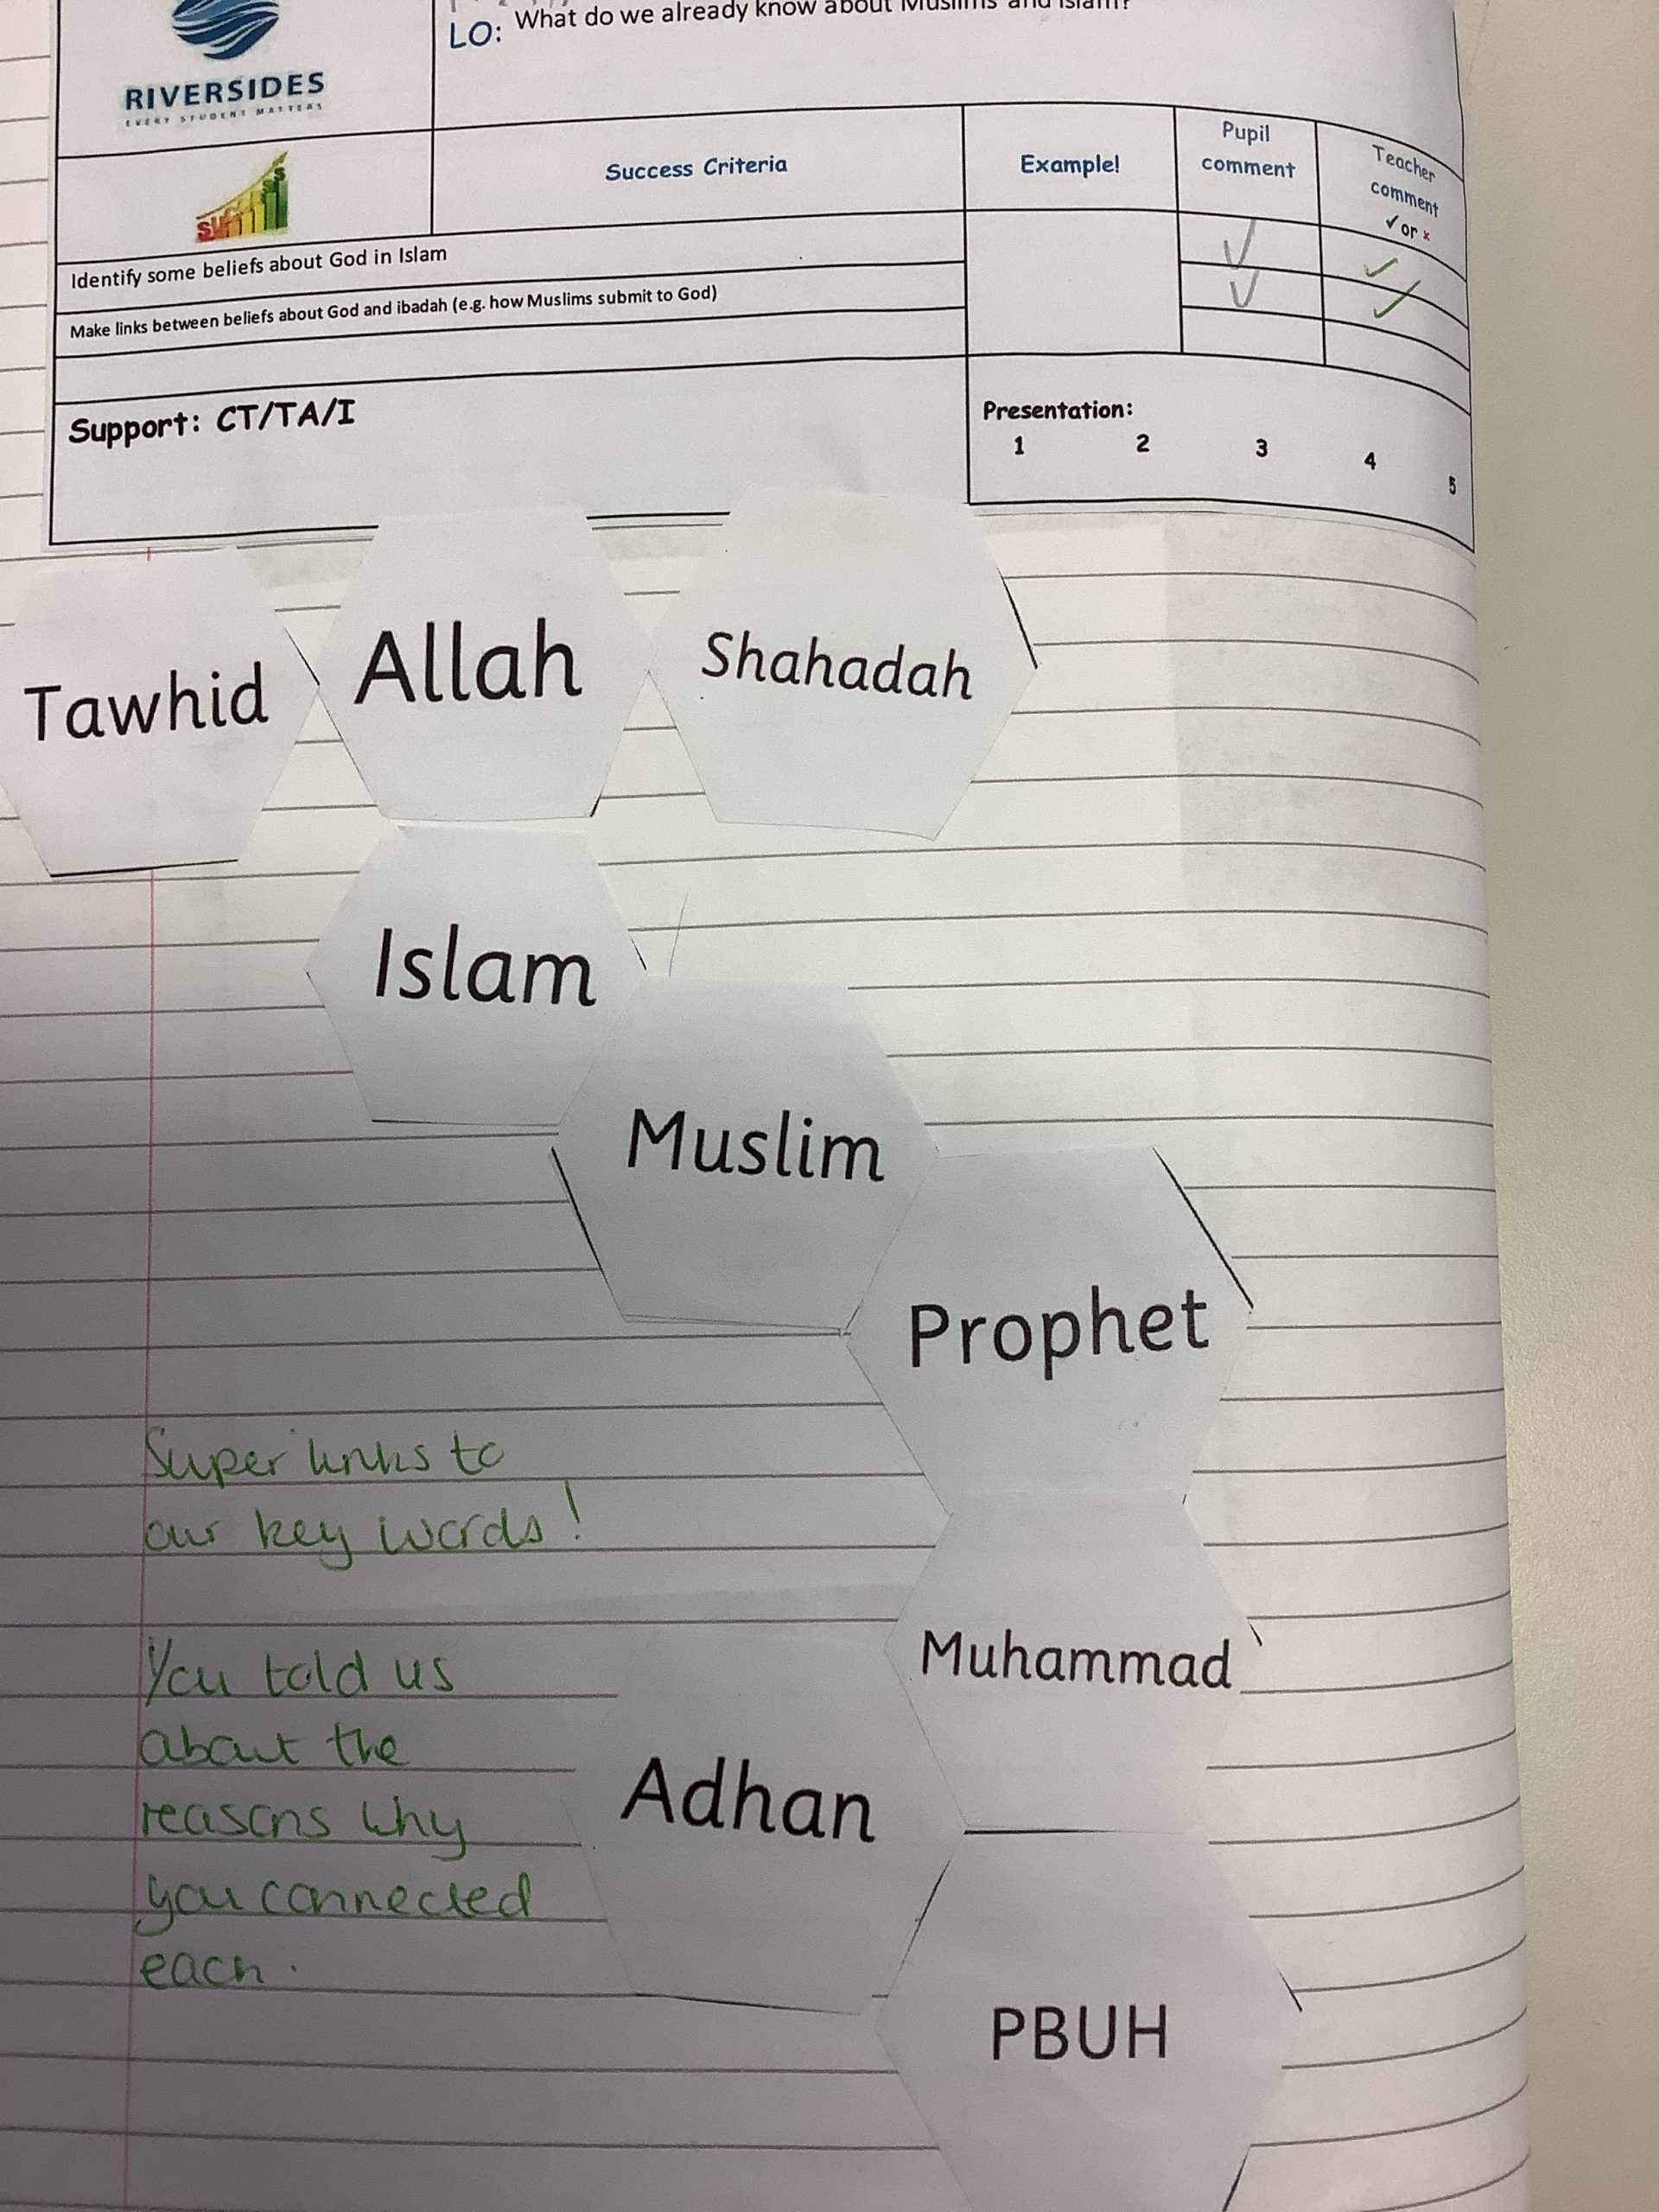 LO: What do we already know about Muslims and Islam?
RIVERSIDES
EVERY STUDENT MATTERS
Success Criteria
Example!
Pupil
comment
Teacher
comment
✓ or x
Identify some beliefs about God in Islam
✓ ✓
Make links between beliefs about God and ibadah (e.g. how Muslims submit to God)
✓ ✓
Support: CT/TA/I
Presentation:
1 2 3 4 5
Tawhid
Allah
Shahadah
Islam
Muslim
Prophet
Super links to
our key words!
Muhammad
You told us
about the
reasons why
you connected
each.
Adhan
PBUH